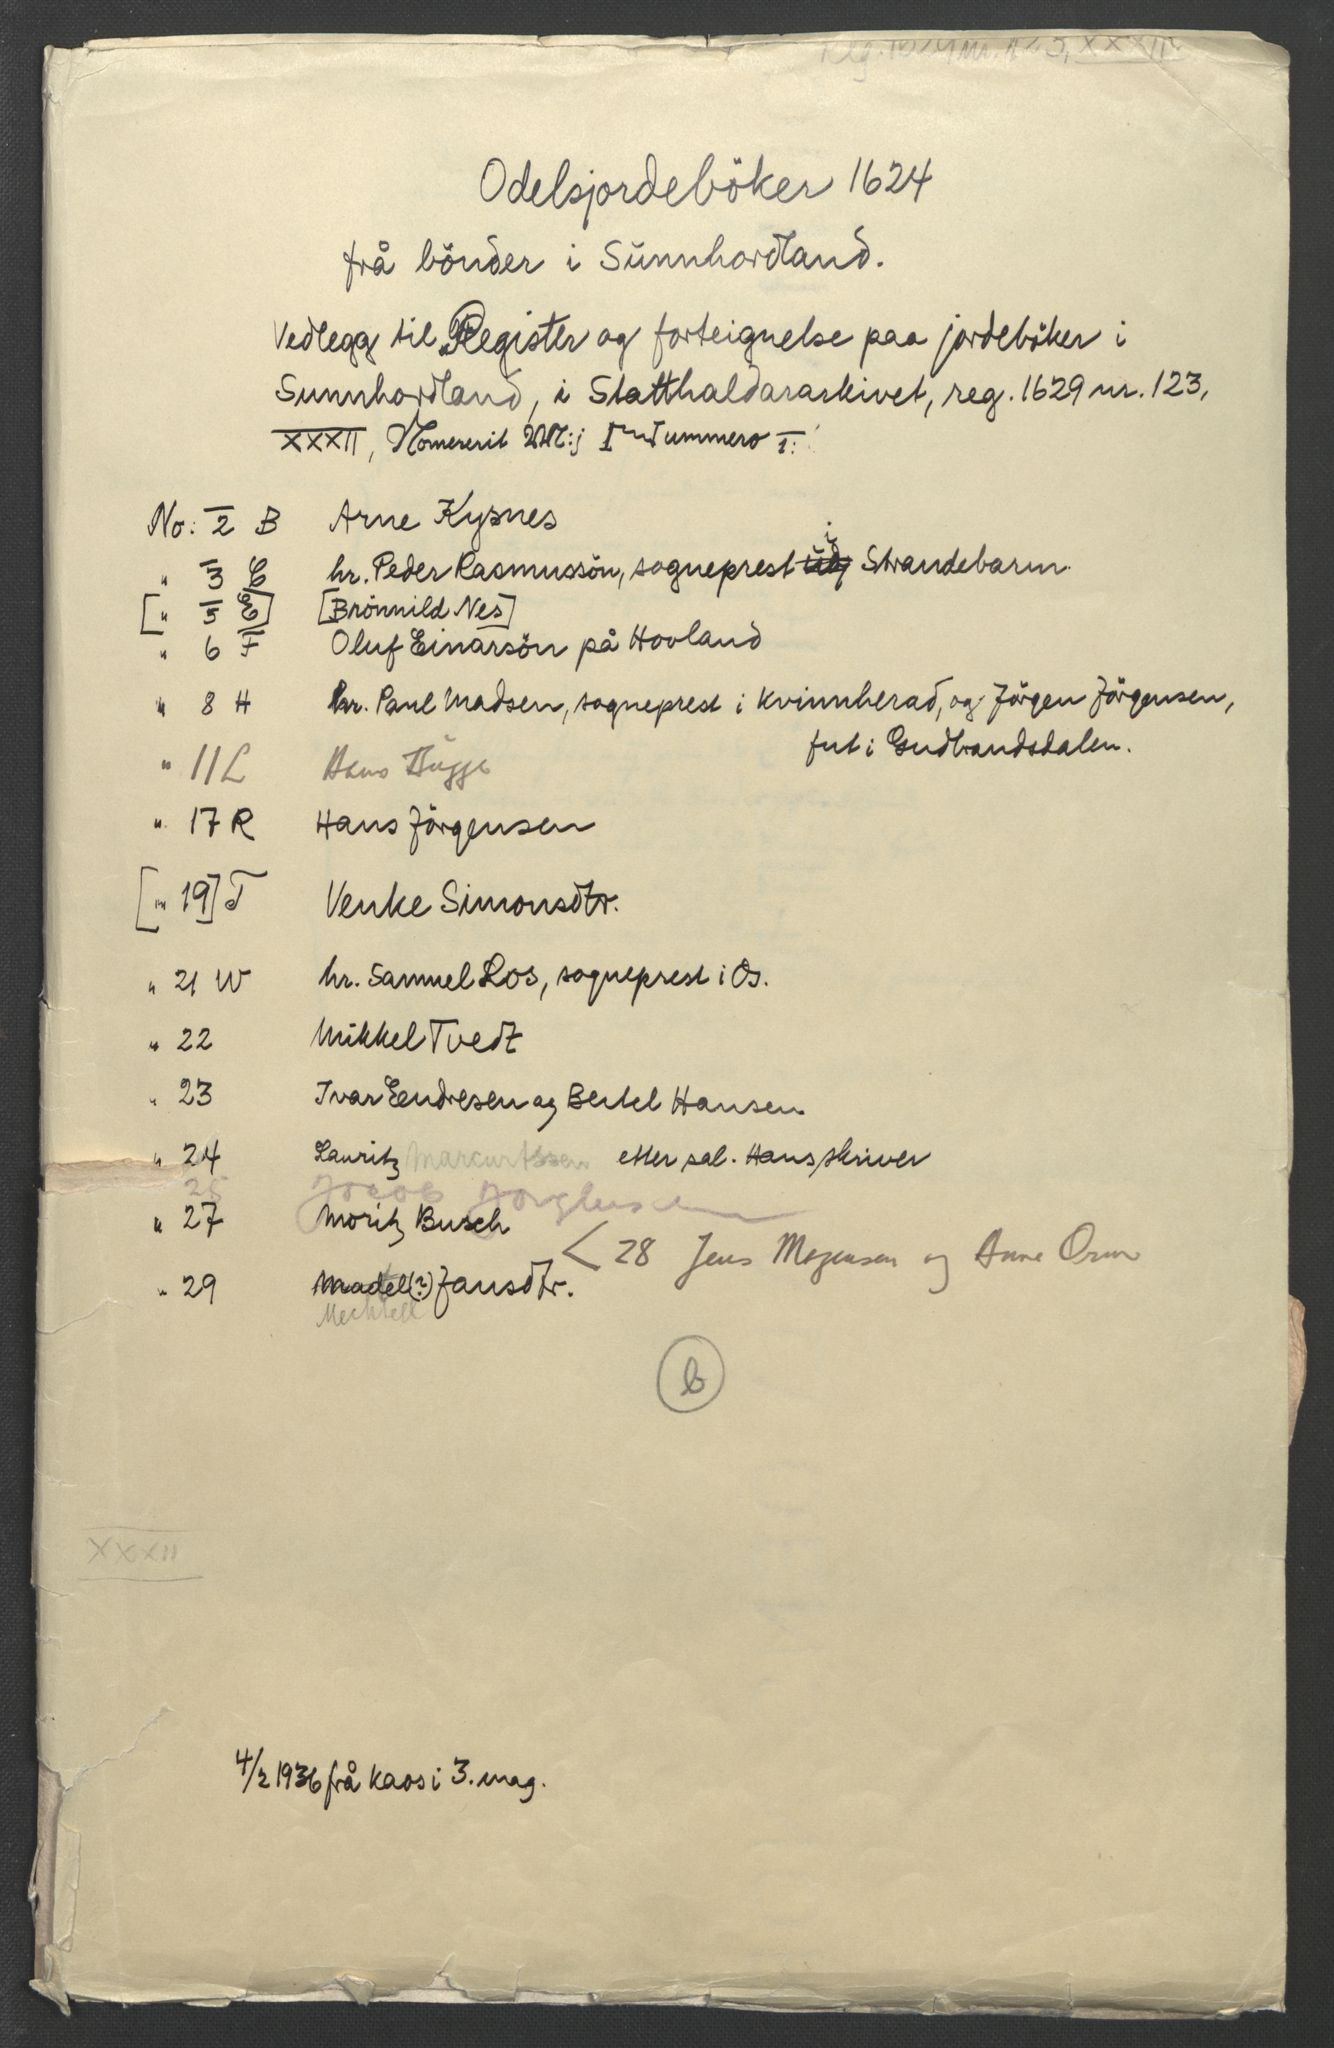 XXXII
Odelsjordeböker 1624
frå bönder i Sŭnnhordland.
Vedlegg til „Register og forteignelse paa jordeböker i
Sunnhordland, i Statthaldararkivet, reg. 1629 nr. 123,
XXXII, I:
No: 2 B Arne Kysnes
" 3 C hr. Peder Rasmussön, sogneprest i Strandebarm
[" 5 E] [Brönnild Nes]
" 6 F Oluf Einarsön på Hovland
" 8 H hr. Paul Madsen, sogneprest i Kvinnherad, og Jörgen Jörgensen,
fut i Gudbrandsdalen.
" 11 L Hans
" 17 R Hans Jörgensen
[" 19] T Venke Simonsdtr.
" 21 W hr. Samuel Ros, sogneprest i Os.
" 22 Mikkel Tvedt
" 23 Ivar Endresen og Bertel Hansen
" 24 Lauritz Marcurssen etter sal. Hans skriver
25 Jacob Jörgensen
" 27 Moritz Busch
< 28 Jens Mogensen og Anne Orm
" 29 Madel(?) Jansdtr.
Mechtell
b
XXXII
4/2 1936 frå kaos i 3. mag.